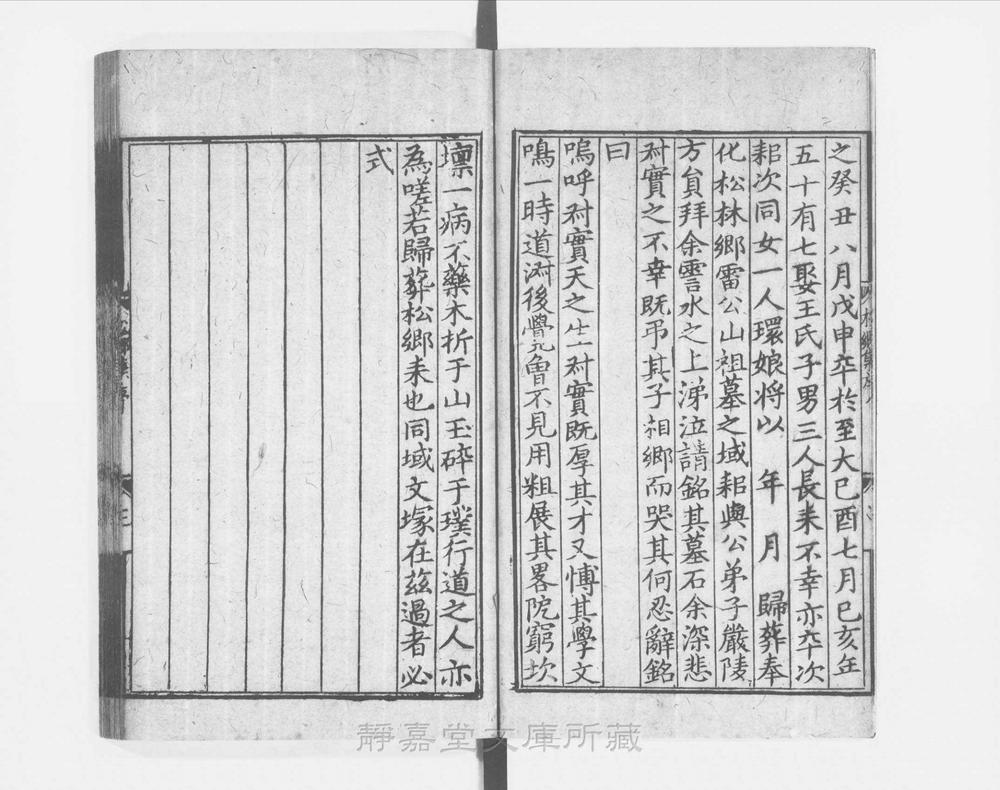 之癸丑八月戊申卒於至大己酉七月己亥年
五十有七娶王氏子男三人長耒不幸亦卒次
耜次同女一人環娘将以　年　月　歸葬奉
化松林鄉雷公山祖墓之域耜與公弟子嚴陵
方負拜余霅水之上涕泣請銘其墓石余深悲
村實之不幸既弔其子相鄉而哭其何忍辭銘
曰
嗚呼村實天之生村實既厚其才又博其學文
鳴一時道淑後覺冗曾不見用粗展其畧阨窮坎
壈一病不藥木折于山玉碎于璞行道之人亦
為嗟若歸葬松鄉耒也同域文塚在茲過者必
式
三
靜嘉堂文庫所藏